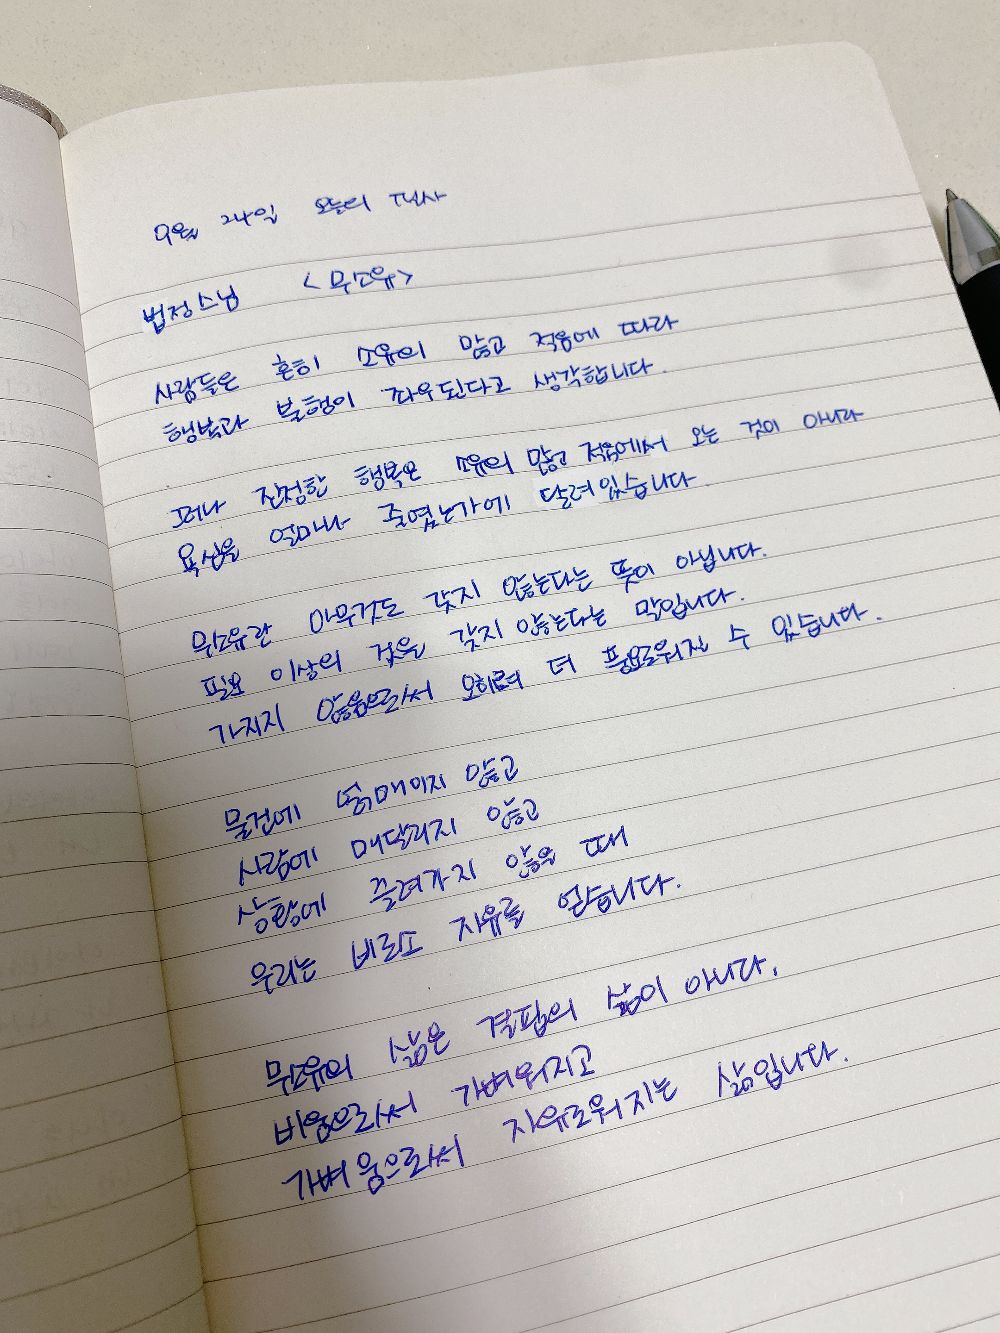 9월 24일 오늘의 필사
법정스님 <무소유>
사람들은 흔히 소유의 많고 적음에 따라
행복과 불행이 좌우된다고 생각합니다.
그러나 진정한 행복은 소유의 많고 적음에서 오는 것이 아니라
욕심을 얼마나 줄였느냐에 달려있습니다.
무소유란 아무것도 갖지 않는다는 뜻이 아닙니다.
필요 이상의 것을 갖지 않는다는 말입니다.
가지지 않음으로써 오히려 더 풍요로워질 수 있습니다.
물건에 얽매이지 않고
사람에 매달리지 않고
상황에 끌려가지 않을 때
우리는 비로소 자유를 얻습니다.
무소유의 삶은 결핍의 삶이 아니라,
비움으로써 가벼워지고
가벼움으로써 자유로워지는 삶입니다.